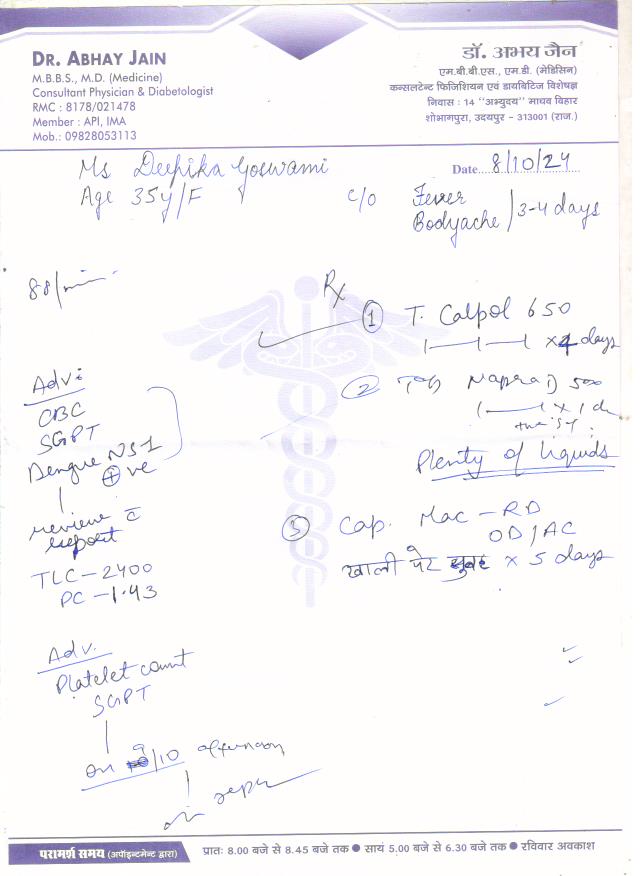 DR. ABHAY JAIN
M.B.B.S., M.D. (Medicine)
Consultant Physician & Diabetologist
RMC : 8178/021478
Member : API, IMA
Mob.: 09828053113
डॉ. अभय जैन
एम.बी.बी.एस., एम.डी. (मेडिसिन)
कन्सलटेन्ट फिजिशियन एवं डायबिटिज विशेषज्ञ
निवास : 14 "अभ्युदय" माधव विहार
शोभागपुरा, उदयपुर - 313001 (राज.)
Ms Deepika Goswami
Age 35y/F
Date 8/10/24
c/o Fever
Bodyache / 3-4 days
88/min
Rx
① T. Calpol 650
x 4 days
② Tab 500
x 1 d
Plenty of liquids
③ Cap. Mac - RD
OD/AC
खाली पेट सुबह x 5 days
Adv:
CBC
SGPT
Dengue NS1
⊕ ve
review c̄
report
TLC - 2400
PC - 1.43
Adv.
Platelet count
SGPT
on 9/10 afternoon
परामर्श समय (अपॉइन्टमेन्ट द्वारा)
प्रातः 8.00 बजे से 8.45 बजे तक ● सायं 5.00 बजे से 6.30 बजे तक ● रविवार अवकाश